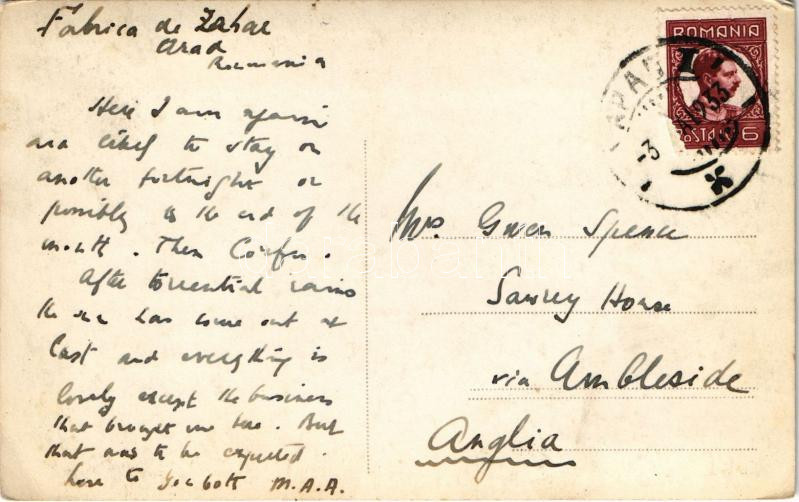 Fabrica de Zahar
Arad
Roumania
Here I am again
and likely to stay on
another fortnight or
possibly to the end of the
month. Then Corfu.
After torrential rains
the sun has come out at
last and everything is
lovely except the business
that brought me here. But
that was to be expected.
Love to you both M.A.A.
ROMANIA
POSTA 6
ARAD 1
-3 933
Mrs Gwen Spence
Sawrey House
via Ambleside
Anglia